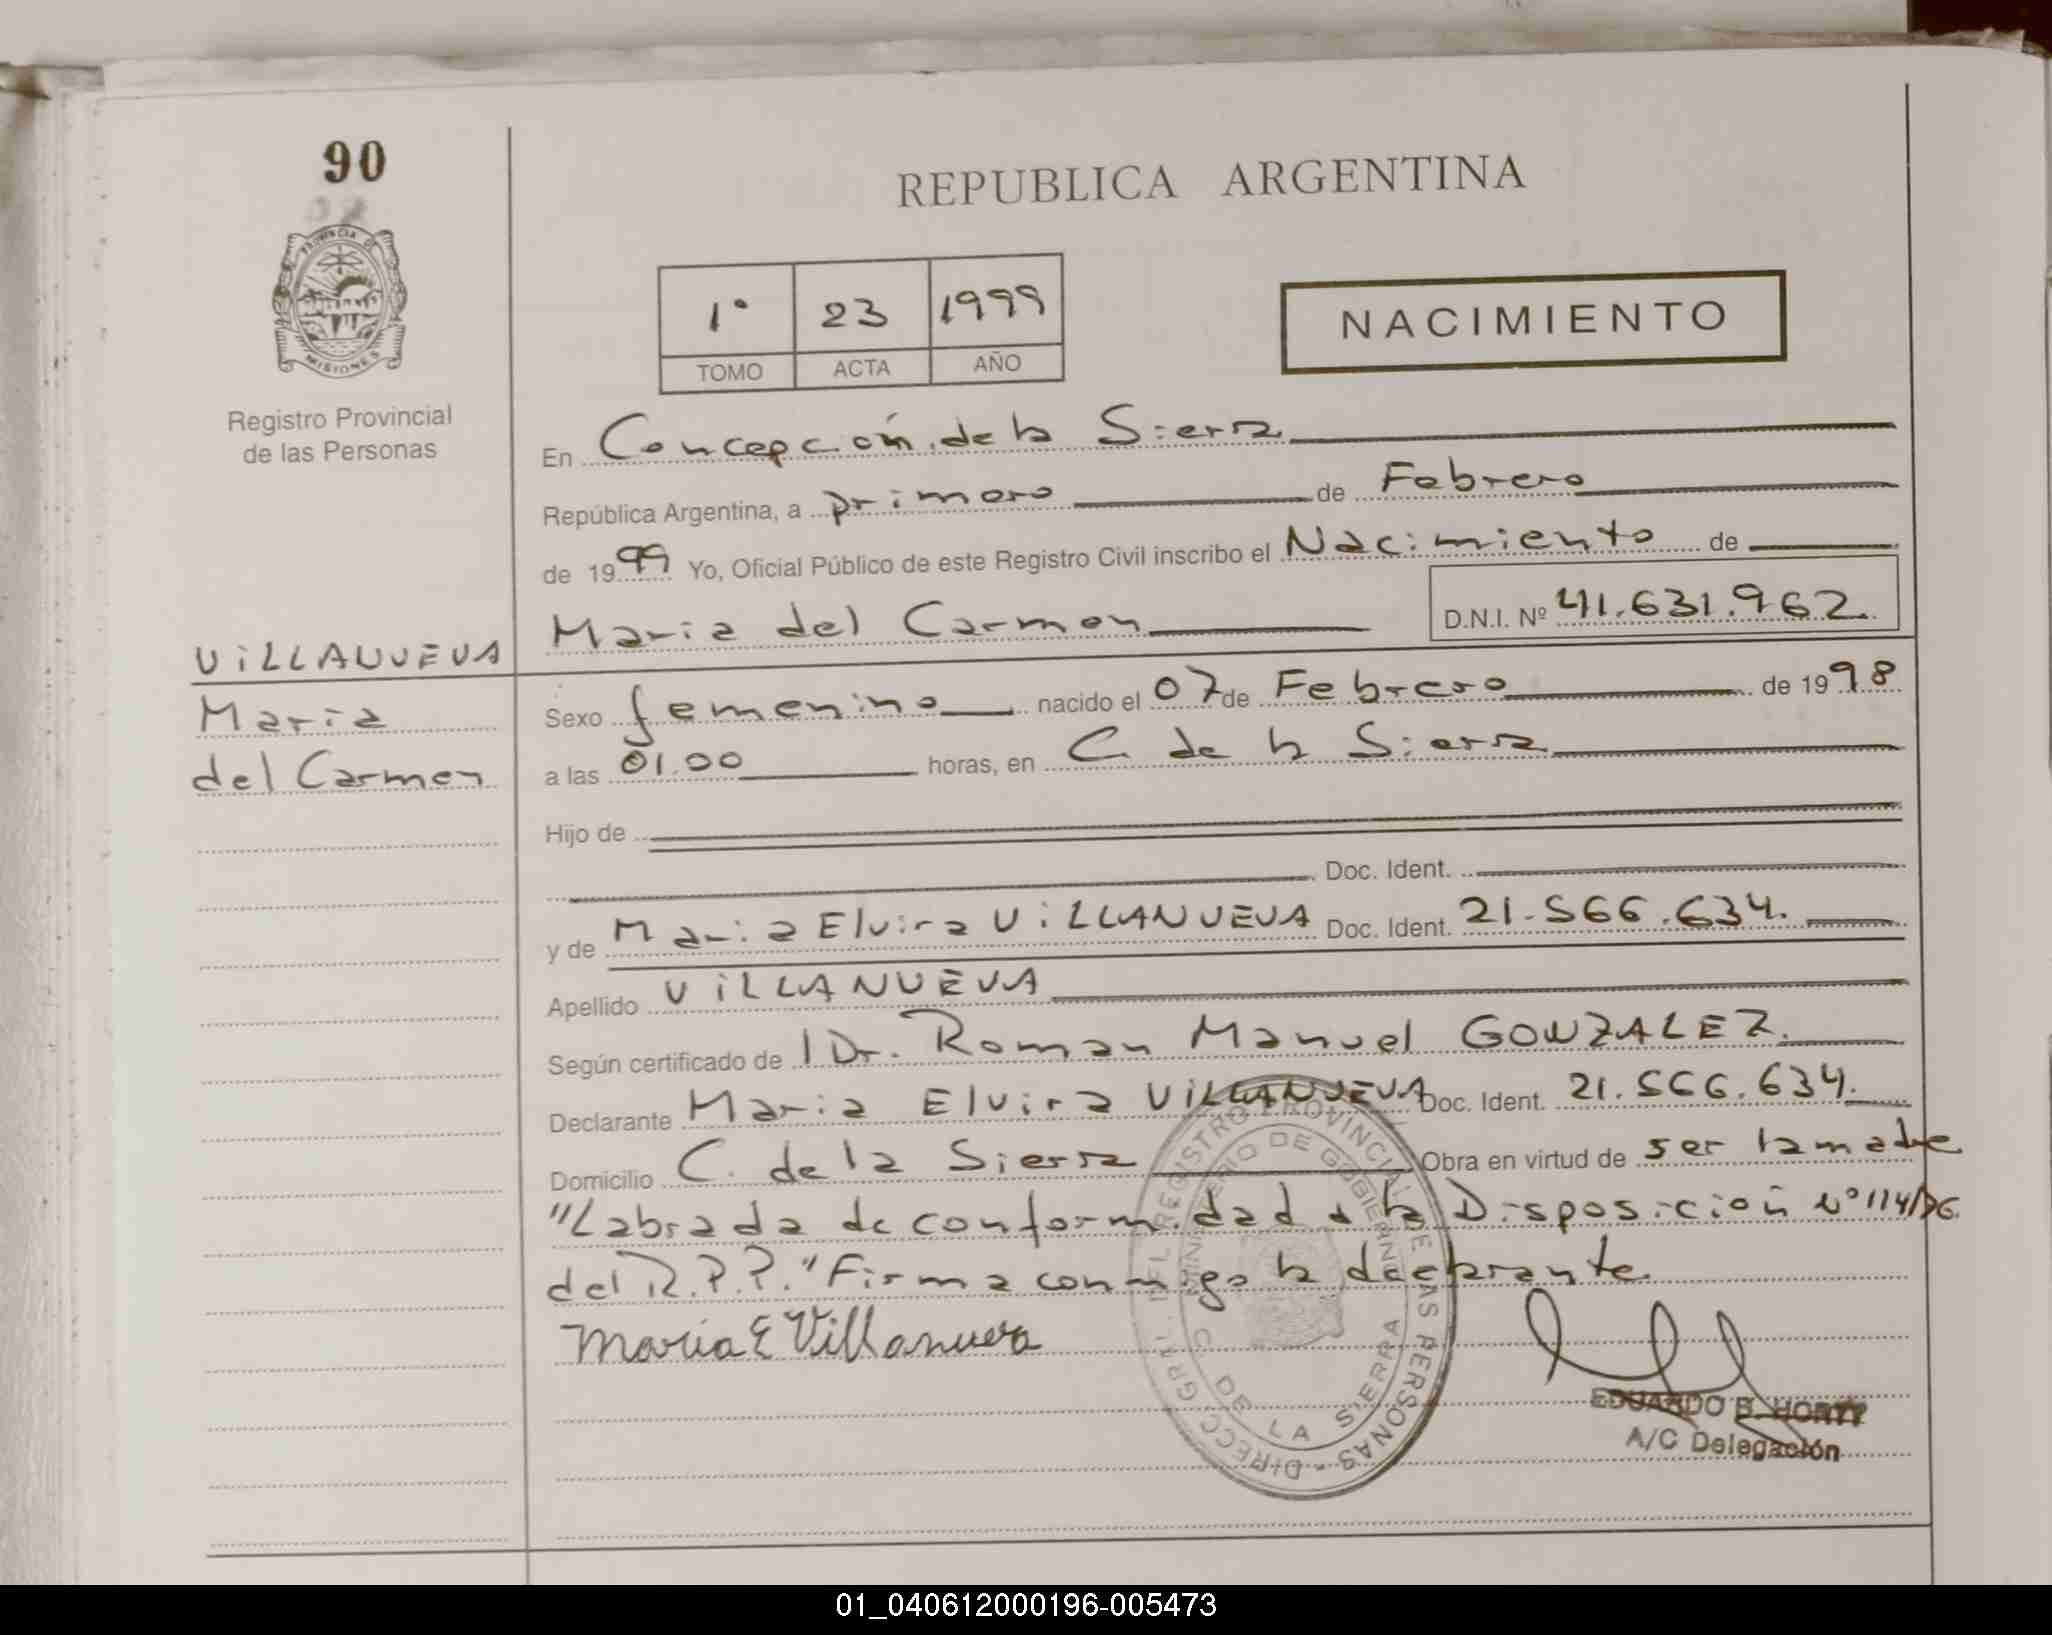 90
PROVINCIA DE
MISIONES
Registro Provincial
de las Personas
REPUBLICA ARGENTINA
1° 23 1999
TOMO ACTA AÑO
NACIMIENTO
En Concepción de la Sierra
República Argentina, a primero de Febrero
de 1999 Yo, Oficial Público de este Registro Civil inscribo el Nacimiento de
Maria del Carmen D.N.I. Nº 41.631.962.
VILLANUEVA
Maria
del Carmen
Sexo femenino nacido el 07 de Febrero de 1998
a las 01.00 horas, en C. de la Sierra
Hijo de
Doc. Ident.
y de Maria Elvira VILLANUEVA Doc. Ident. 21.566.634.
Apellido VILLANUEVA
Según certificado de l Dr. Roman Manuel GONZALEZ.
Declarante Maria Elvira VILLANUEVA Doc. Ident. 21.566.634.
Domicilio C. de la Sierra Obra en virtud de ser la madre
"Labrada de conformidad a la Disposición Nº 114/96
del R.P.P." Firma conmigo la declarante
Maria E Villanueva
DIRECC. GRAL. DEL REGISTRO PROVINCIAL DE LAS PERSONAS
MINISTERIO DE GOBIERNO
C. DE LA SIERRA
EDUARDO B. HORTT
A/C Delegación
01_040612000196-005473